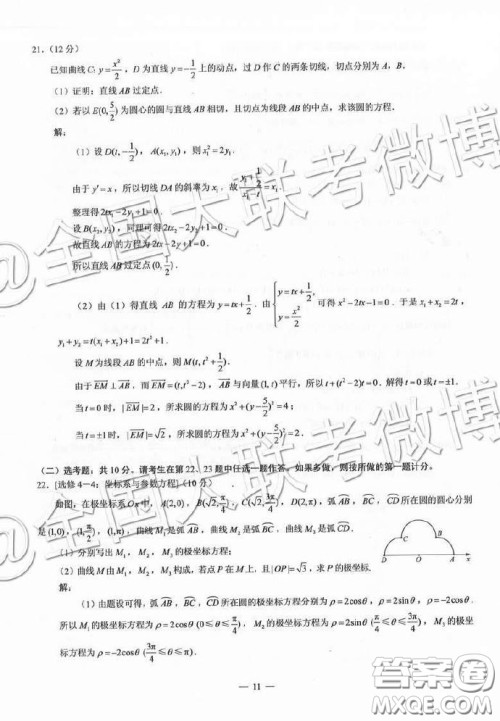 21.（12 分）
已知曲线 C: y=x²/2，D 为直线 y=-1/2 上的动点，过 D 作 C 的两条切线，切点分别为 A，B.
（1）证明：直线 AB 过定点.
（2）若以 E(0,5/2) 为圆心的圆与直线 AB 相切，且切点为线段 AB 的中点，求该圆的方程.
解：
（1）设 D(t,-1/2)，A(x₁,y₁)，则 x₁²=2y₁.
由于 y'=x，所以切线 DA 的斜率为 x₁. 故 (y₁+1/2)/(x₁-t)=x₁
整理得 2tx₁-2y₁+1=0.
设 B(x₂,y₂)，同理可得 2tx₂-2y₂+1=0.
故直线 AB 的方程为 2tx-2y+1=0.
所以直线 AB 过定点 (0,1/2).
（2）由（1）得直线 AB 的方程为 y=tx+1/2. 由 {y=tx+1/2, y=x²/2 可得 x²-2tx-1=0. 于是 x₁+x₂=2t，
y₁+y₂=t(x₁+x₂)+1=2t²+1.
设 M 为线段 AB 的中点，则 M(t,t²+1/2).
由于 EM⊥AB. 而 EM=(t,t²-2)，AB 与向量(1,t) 平行，所以 t+(t²-2)t=0. 解得 t=0 或 t=±1.
当 t=0 时，|EM|=2，所求圆的方程为 x²+(y-5/2)²=4；
当 t=±1 时，|EM|=√2，所求圆的方程为 x²+(y-5/2)²=2.
（二）选考题：共 10 分。请考生在第 22、23 题中任选一题作答。如果多做，则按所做的第一题计分。
22.［选修 4—4：坐标系与参数方程］（10 分）
如图，在极坐标系 Ox 中，A(2,0)，B(√2,π/4)，C(√2,3π/4)，D(2,π)，弧 AB，BC，CD 所在圆的圆心分别
是 (1,0)，(1,π/2)，(1,π)，曲线 M₁ 是弧 AB，曲线 M₂ 是弧 BC，曲线 M₃ 是弧 CD.
（1）分别写出 M₁，M₂，M₃ 的极坐标方程；
（2）曲线 M 由 M₁，M₂，M₃ 构成，若点 P 在 M 上，且 |OP|=√3，求 P 的极坐标.
B
C
D O A x
解：
（1）由题设可得，弧 AB，BC，CD 所在圆的极坐标方程分别为 ρ=2cosθ，ρ=2sinθ，ρ=-2cosθ.
所以 M₁ 的极坐标方程为 ρ=2cosθ (0≤θ≤π/4)，M₂ 的极坐标方程为 ρ=2sinθ (π/4≤θ≤3π/4)，M₃ 的极坐
标方程为 ρ=-2cosθ (3π/4≤θ≤π).
— 11 —
@全国大联考微博
@全国大联考微博
答案圈
MXQE.COM